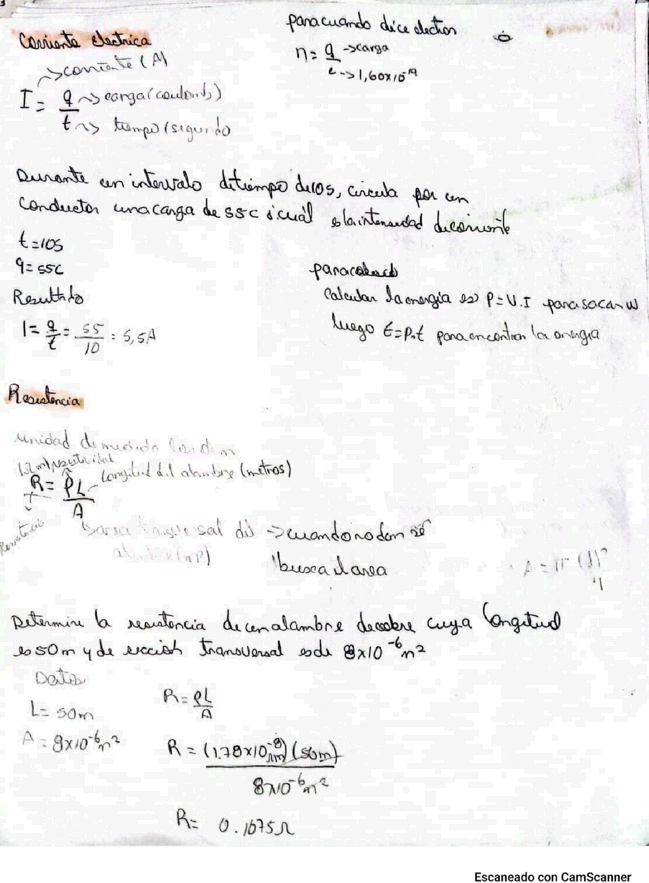 3
Corriente electrica
para cuando dice electron
n= q →carga
e →1,60x10⁻¹⁹
→corriente (A)
I = q → carga (coulomb)
t → tiempo (segundo
Durante un intervalo de tiempo de 10s, circula por un
conductor una carga de 55c ¿cuál es la intensidad de corriente
t=10s
q=55c
Resultado
I = q/t = 55/10 = 5,5A
para
calcular la energia es P=V.I para sacar W
luego E=P.t para encontrar la energia
Resistencia
unidad de medida
R= ρL
A
Longitud del alambre (metros)
Resistencia
→ cuando no dan se
busca el area
A = π (d)²
4
Determine la resistencia de un alambre de cobre cuya longitud
es 50m y de sección transversal es de 8x10⁻⁶m²
Datos
L= 50m
A = 8x10⁻⁶m²
R= ρL
A
R = (1.78x10⁻⁸Ωm) (50m)
8x10⁻⁶m²
R= 0.1075Ω
Escaneado con CamScanner